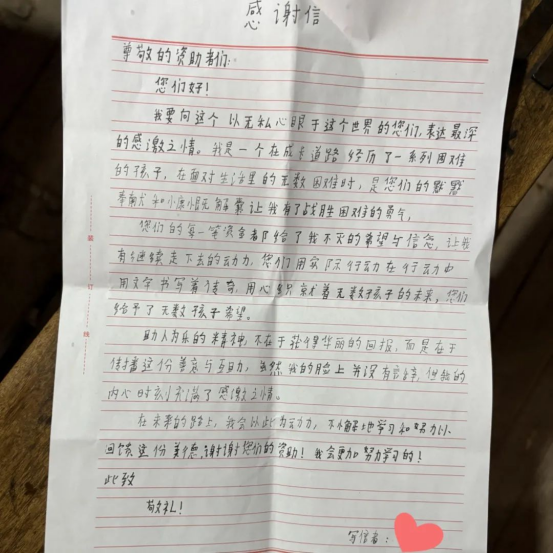 感谢信
尊敬的资助者们:
您们好!
我要向这个以无私心眼于这个世界的您们,表达最深
的感激之情。我是一个在成长道路经历了一系列困难
的孩子,在面对生活里的无数困难时,是您们的默默
奉献和慷慨无解囊让我有了战胜困难的勇气,
您们的每一笔资金都给了我不灭的希望与信念,让我
有继续走下去的动力,您们用实际行动在行动中
用文字书写着传奇,用心织就着无数孩子的未来,您们
给予了无数孩子希望。
助人为乐的精神,不在于获得华丽的回报,而是在于
传播这份美京与互助,虽然我的脸上并没有言辞,但我的
内心时刻充满了感激之情。
在未来的路上,我会以此为动力,不懈地学习和努力以
回馈这份美德,谢谢您们的资助!我会更加努力学习的!
此致
敬礼!
写信者:
装
订
线